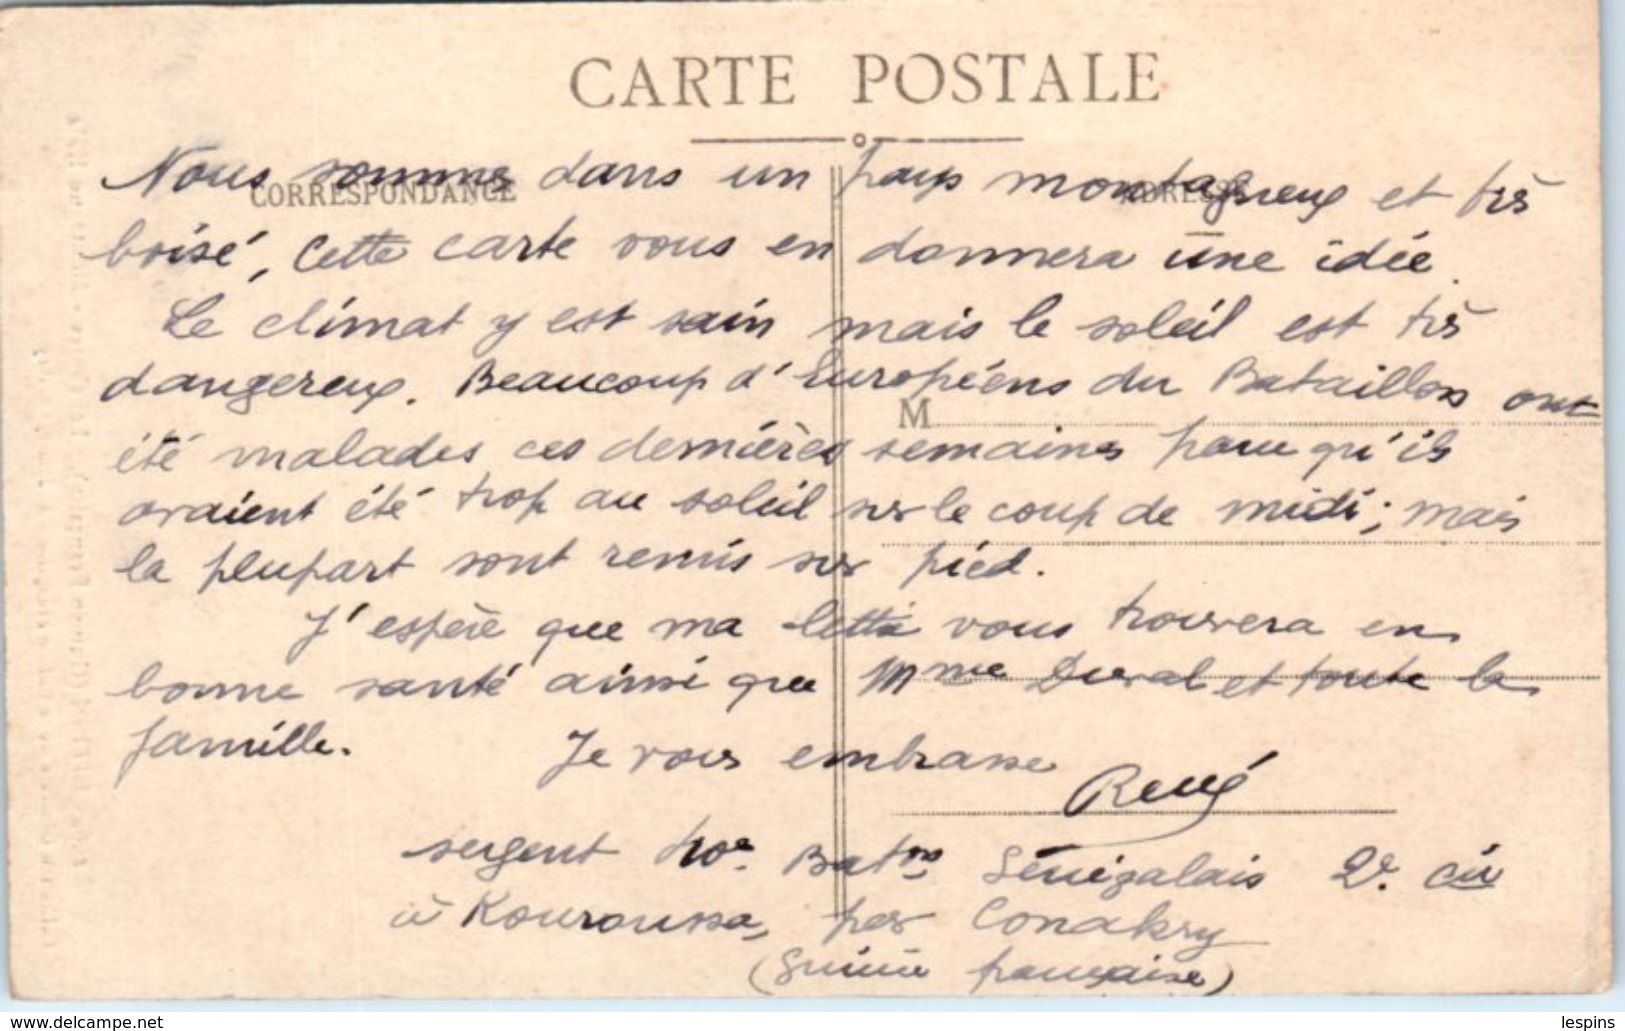 CARTE POSTALE
CORRESPONDANCE
ADRESSE
Nous sommes dans un pays montagneux et très
boisé, Cette carte vous en donnera une idée.
Le climat y est sain mais le soleil est très
dangereux. Beaucoup d'Européens du Bataillon ont
M
été malades ces dernières semaines parce qu'ils
avaient été trop au soleil sur le coup de midi; mais
la plupart sont remis sur pied.
J'espère que ma lettre vous trouvera en
bonne santé ainsi que Mme Duval et toute la
famille. Je vous embrasse
René
sergent Bat^on Sénégalais 2e. Cie
à Kouroussa, par Conakry
(Guinée française)
lespins
www.delcampe.net